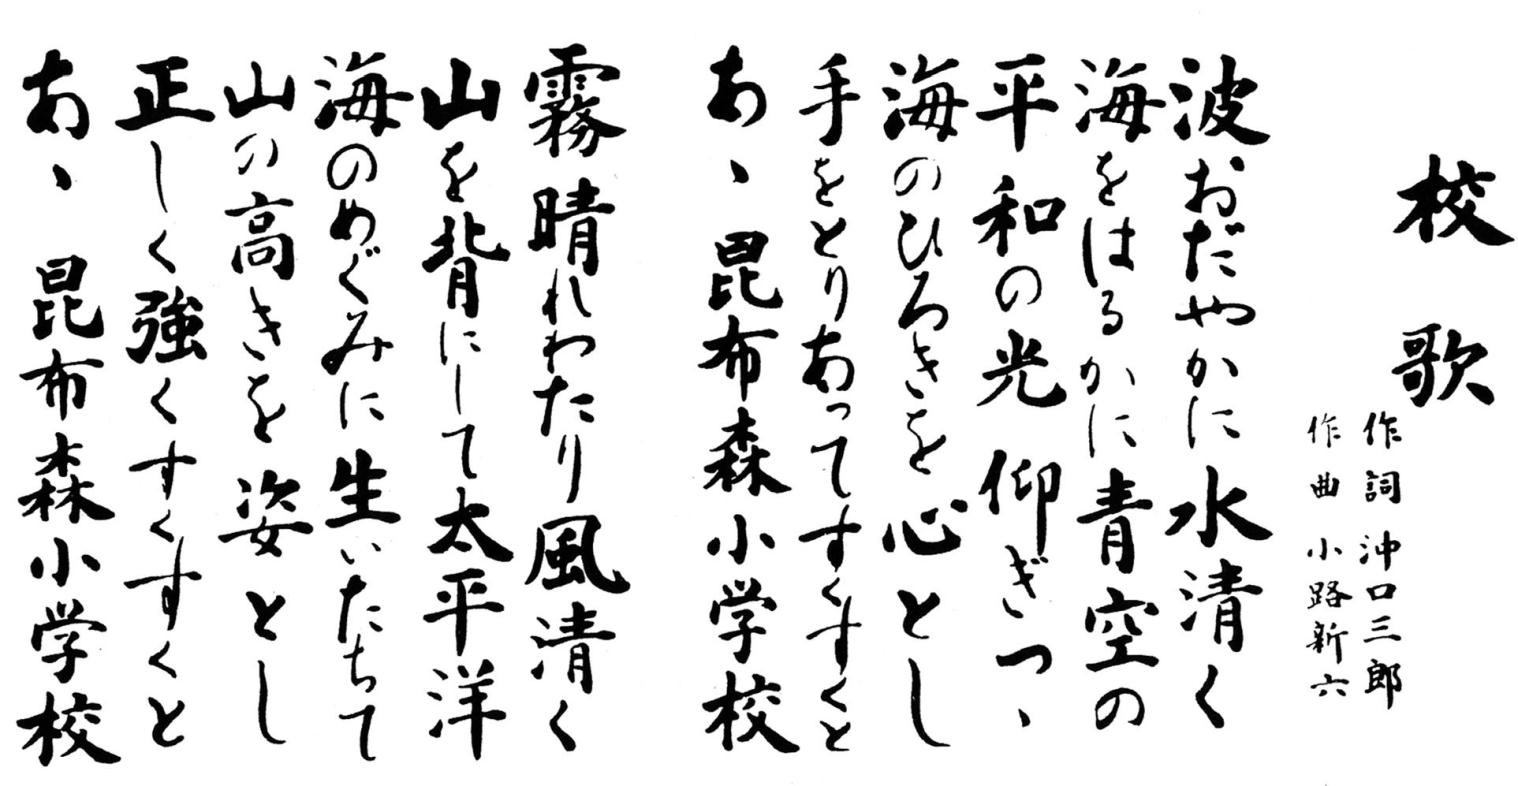 校歌
作詞 沖口三郎
作曲 小路新六
波おだやかに水清く
海をはるかに青空の
平和の光 仰ぎつゝ
海のひろきを心とし
手をとりあってすくすくと
あゝ 昆布森小学校
霧晴れわたり風清く
山を背にして太平洋
海のめぐみに生いたちて
山の高きを姿とし
正しく強くすくすくと
あゝ 昆布森小学校